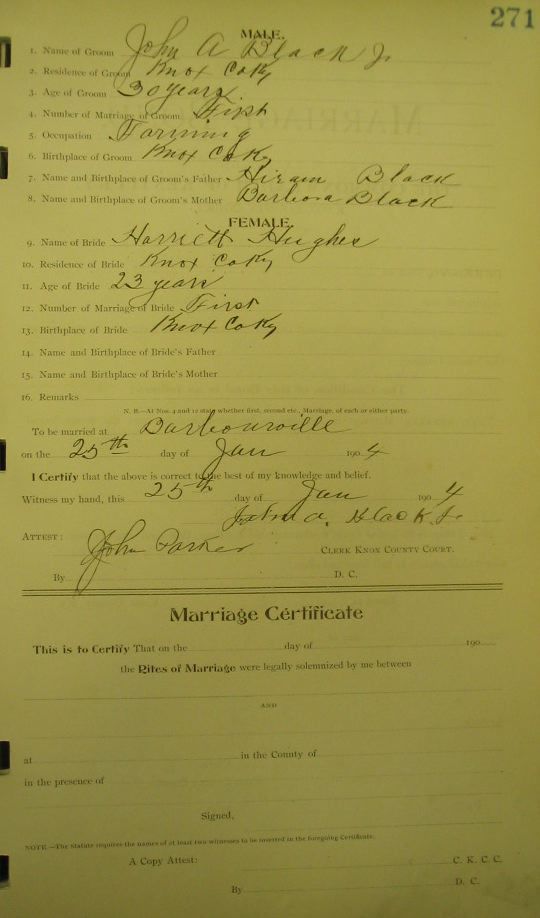 271
MALE.
1. Name of Groom John A Black Jr
2. Residence of Groom Knox Co Ky
3. Age of Groom 30 years
4. Number of Marriage of Groom First
5. Occupation Farming
6. Birthplace of Groom Knox Co Ky
7. Name and Birthplace of Groom's Father Hiram Black
8. Name and Birthplace of Groom's Mother Barbora Black
FEMALE.
9. Name of Bride Harriett Hughes
10. Residence of Bride Knox Co Ky
11. Age of Bride 23 years
12. Number of Marriage of Bride First
13. Birthplace of Bride Knox Co Ky
14. Name and Birthplace of Bride's Father
15. Name and Birthplace of Bride's Mother
16. Remarks
N. B.—At Nos. 4 and 12 state whether first, second etc., Marriage, of each or either party.
To be married at Barbourville
on the 25th day of Jan 1904
I Certify that the above is correct to the best of my knowledge and belief.
Witness my hand, this 25th day of Jan 1904
John A. Black Jr
ATTEST: John Parker CLERK KNOX COUNTY COURT.
By D. C.
Marriage Certificate
This is to Certify That on the day of 190
the Rites of Marriage were legally solemnized by me between
AND
at in the County of
in the presence of
Signed,
NOTE.—The Statute requires the names of at least two witnesses to be inserted in the foregoing Certificate.
A Copy Attest: C. K. C. C.
By D. C.